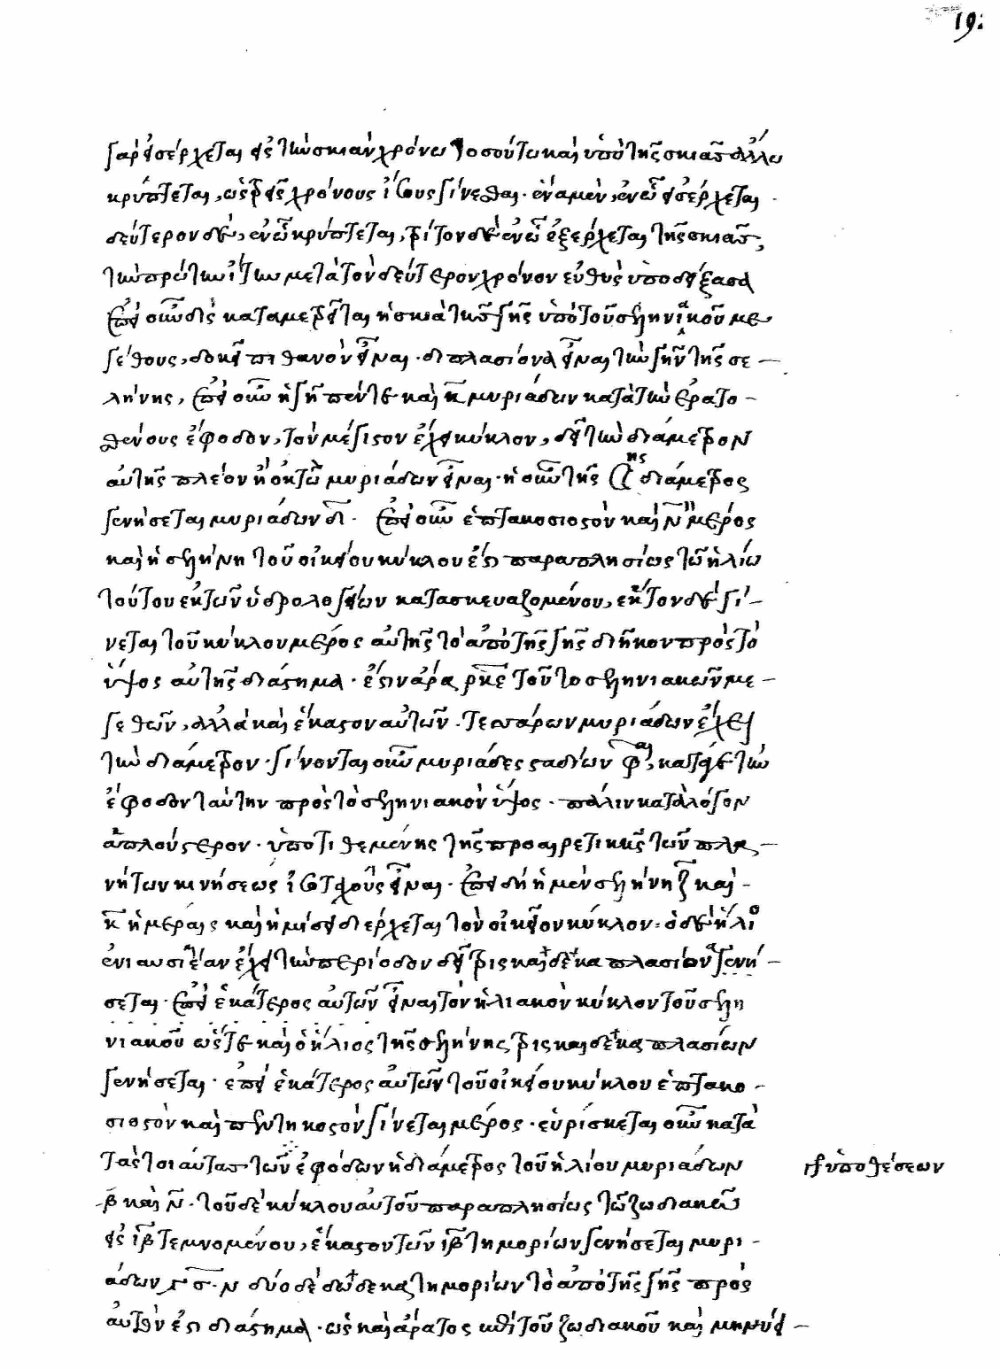 19:
γὰρ εἰσέρχεται εἰς τὴν σκιὰν χρόνω τοσούτω καὶ ὑπὸ τῆς σκιᾶς ἄλλω
κρύπτεται, ὡς τρεῖς χρόνους ἴσους γίνεσθαι· ἕνα μὲν, ἐν ὧ εἰσέρχεται·
δεύτερον δὲ, ἐν ὧ κρύπτεται, τρίτον δὲ ἐν ὧ ἐξέρχεται τῆς σκιᾶς,
τὼ πρώτω ἴτυν μετὰ τὸν δεύτερον χρόνον εὐθὺς ὑποδείξασα
ἐπεὶ οὖν δὶς καταμετρεῖται ἡ σκιὰ τῆς γῆς ὑπὸ τοῦ σεληνιακοῦ με
γέθους, δοκεῖ πιθανὸν εἶναι· διπλασίονα εἶναι τὴν γῆν τῆς σε—
λήνης, ἐπεὶ οὖν ἡ γῆ πέντε καὶ κ̅ μυριάδων κατὰ τὴν ἐρατο—
σθένους ἔφοδον, τὸν μέγιστον ἔχει κύκλον, δεῖ τὴν διάμετρον
αὐτῆς πλέον ἢ ὀκτὼ μυριάδων εἶναι· ἡ οὖν τῆς ☾ης διάμετρος
γενήσεται μυριάδων δ̅. ἐπεὶ οὖν ἑπτακοσιοστὸν καὶ ν̅ μέρος
καὶ ἡ σελήνη τοῦ οἰκείου κύκλου ἐστὶ παραπλησίως τῶ ἡλίω
τούτου ἐκ τῶν ὑδρολογείων κατασκευαζομένου, ἕκτον δὲ γί—
νεται τοῦ κύκλου μέρος αὐτῆς τὸ ἀπὸ τῆς γῆς διῆκον πρὸς τὸ
ὕψος αὐτῆς διάστημα· ἔστιν ἄρα ρκε̅ τοῦτο σεληνιακῶν με—
γεθῶν, ἀλλὰ καὶ ἕκαστον αὐτῶν τεσσάρων μυριάδων ἔχει
τὴν διάμετρον· γίνονται οὖν μυριάδες σταδίων φ̅, κατά γε τὴν
ἔφοδον ταύτην πρὸς τὸ σεληνιακὸν ὕψος· πάλιν κατὰ λόγον
ἁπλούστερον· ὑποτιθεμένης τῆς προαιρετικῆς τῶν πλα—
νήτων κινήσεως ἰσοταχοῦς εἶναι· ἐπειδὴ ἡ μὲν σελήνη ζ̅ καὶ—
κ̅ ἡμέραις καὶ ἡμίσει διέρχεται τὸν οἰκεῖον κύκλον· ὁ δὲ ἥλιο
ἐνιαυσιαίαν ἔχει τὴν περίοδον δεῖ τρισκαιδεκαπλασίονα γενή—
σεται· ἐπεὶ ἑκάτερος αὐτῶν εἶναι τὸν ἡλιακὸν κύκλον τοῦ σελη
νιακοῦ ὥστε καὶ ὁ ἥλιος τῆς σελήνης τρισκαιδεκαπλασίων
γενήσεται· ἐπεὶ ἑκάτερος αὐτῶν τοῦ οἰκείου κύκλου ἑπτακο—
σιοστὸν καὶ πεντηκοστὸν γίνεται μέρος· εὑρίσκεται οὖν κατὰ
τὰς τοιαύτας τῶν ἐφόδων ἡ διάμετρος τοῦ ἡλίου μυριάδων
γρ ὑποθέσεων
β̅ καὶ ν̅· τοῦ δὲ κύκλου αὐτοῦ παραπλησίως τῶ ζωδιακῶ
εἰς ιβ̅ τεμνομένου, ἕκαστον τῶν ιβ̅ τημορίων γενήσεται μυρι—
άδων ͵γσ̅ν δύο δὲ δωδεκατημορίων τὸ ἀπὸ τῆς γῆς πρὸς
αὐτὸν ἐστὶ διάστημα· ὡς καὶ ἄρατος ἐπὶ τοῦ ζωδιακοῦ καὶ μηνύει—